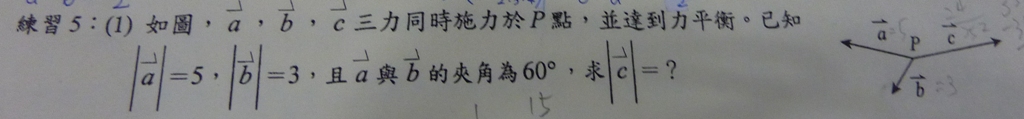 練習5：(1) 如圖，a，b，c 三力同時施力於 P 點，並達到力平衡。已知
|a|=5，|b|=3，且 a 與 b 的夾角為60°，求|c|=？
a =5 P c
b =3
15